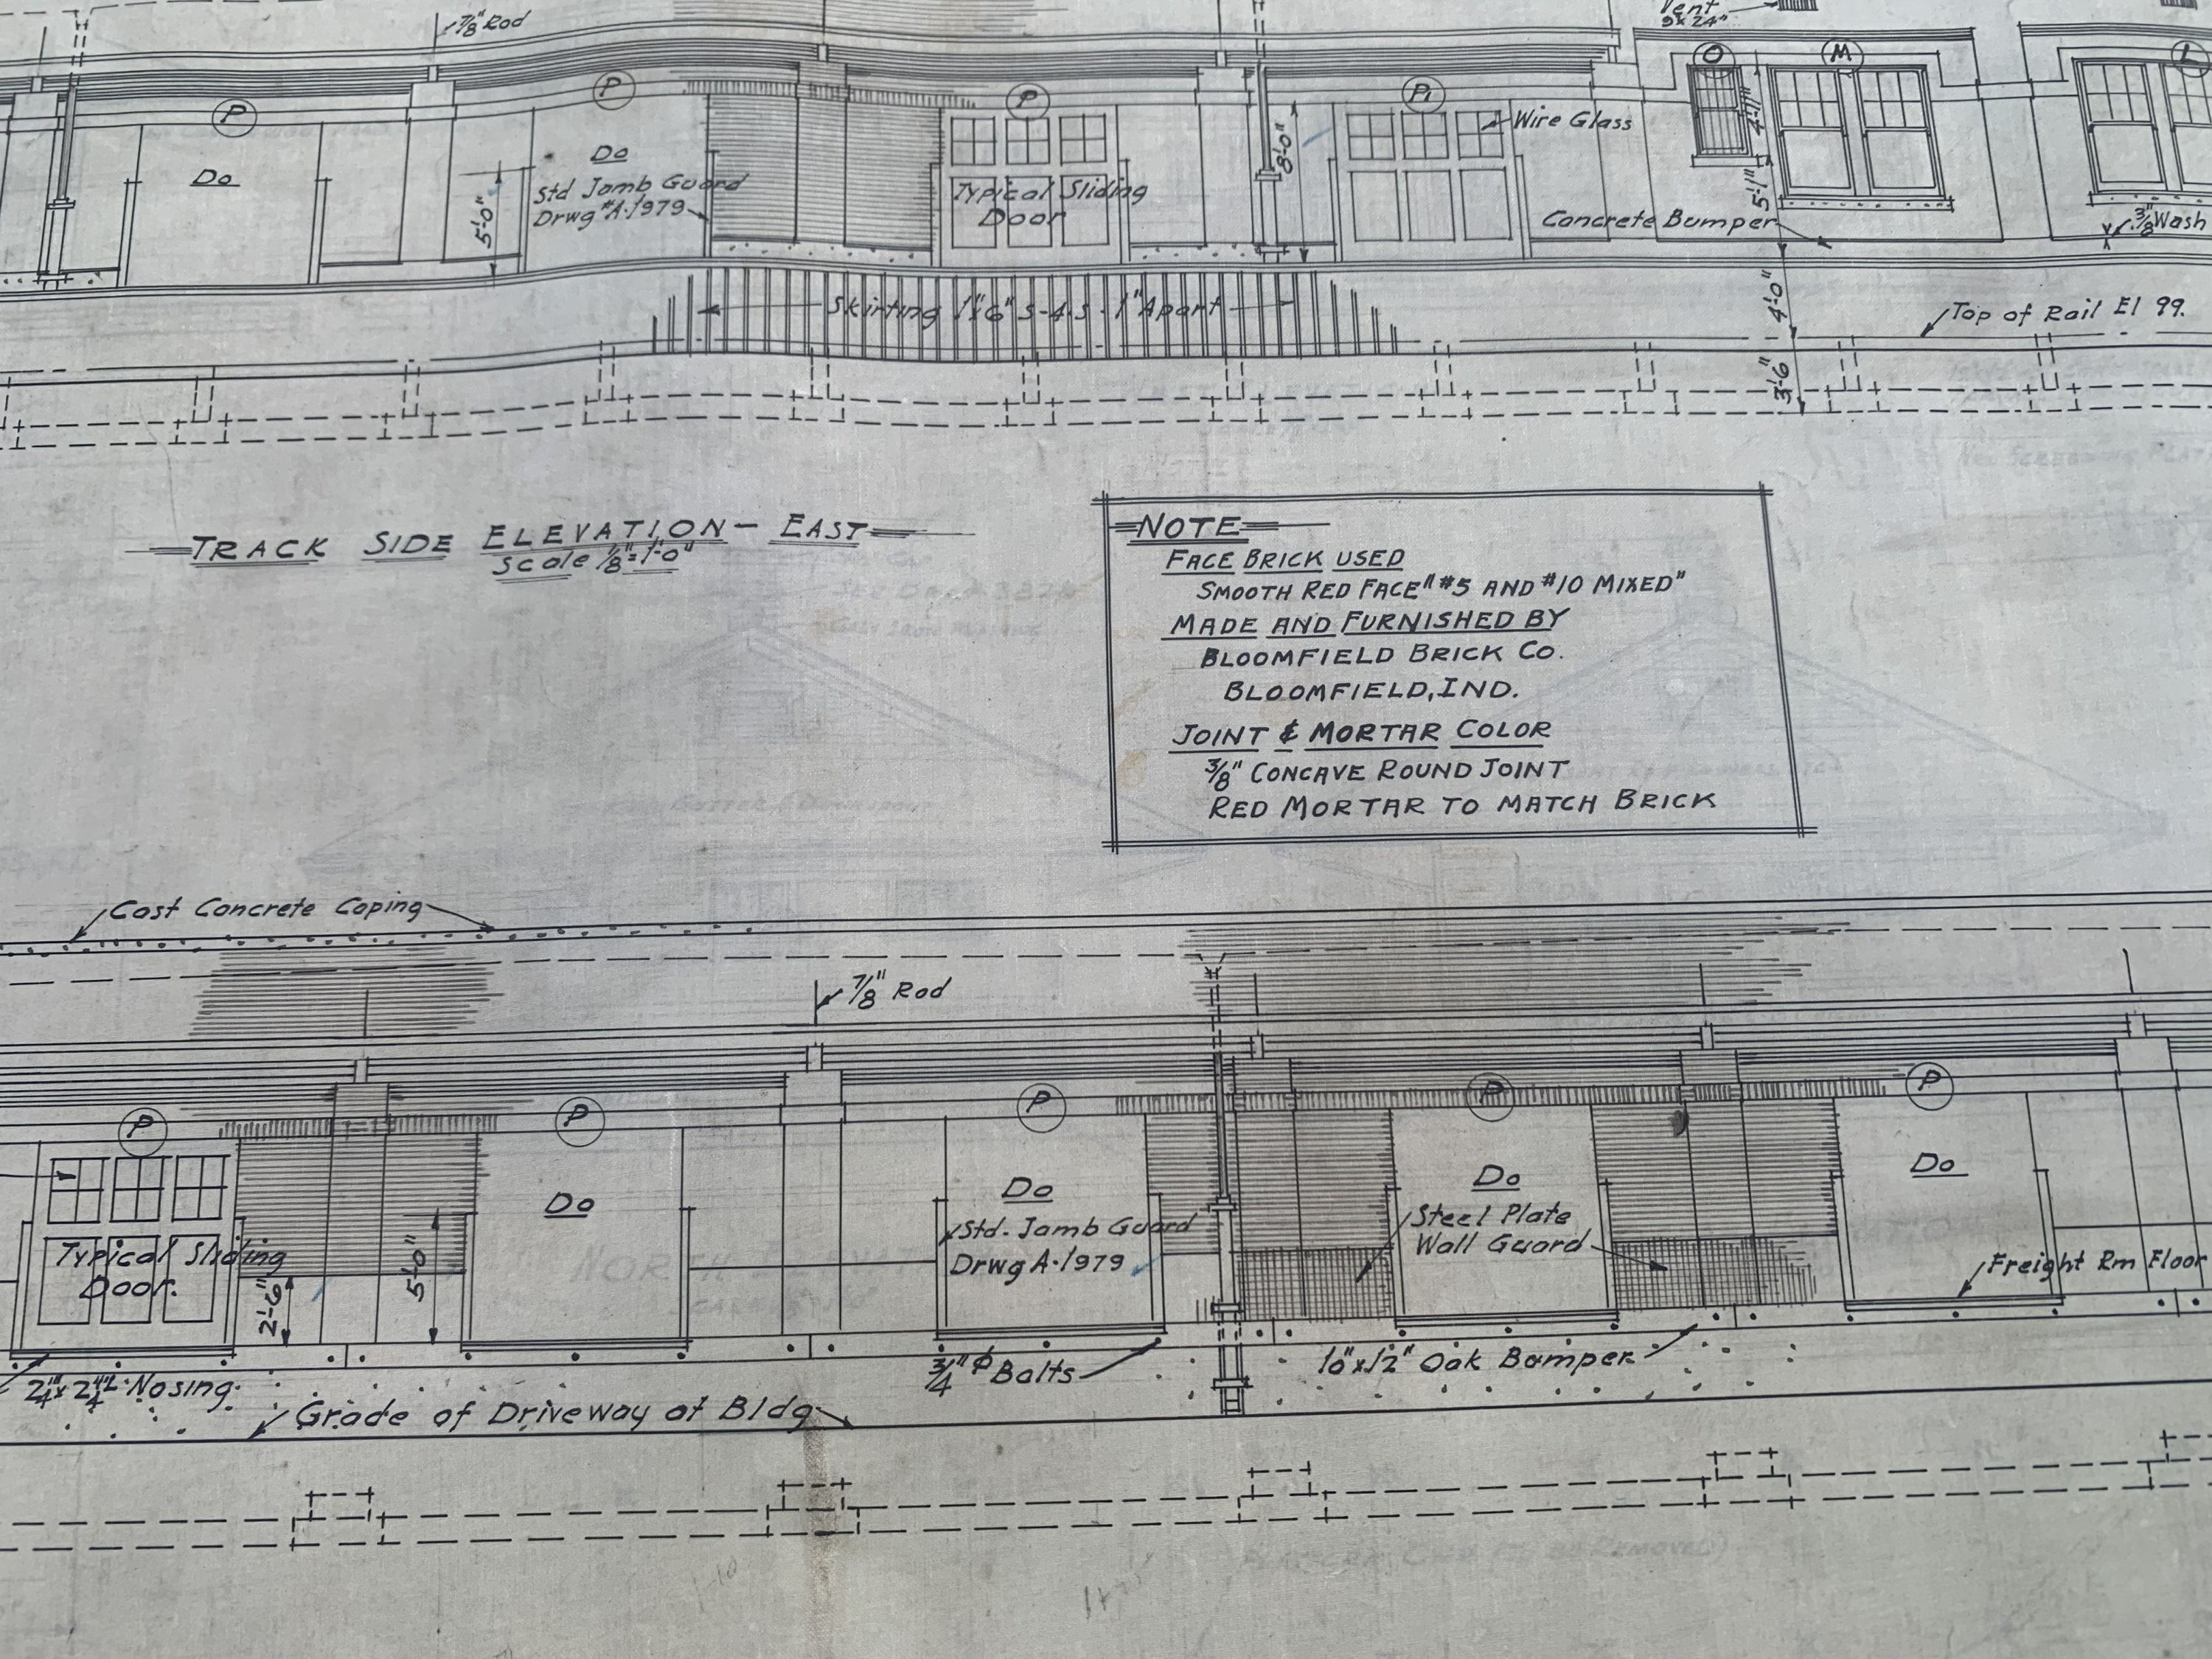 7/8" Rod
Vent
9x24"
P
P
P
P1
O
M
L
Do
Do
Std Jamb Guard
Drwg #A-1979
5'-0"
Typical Sliding
Door
8'-0"
Wire Glass
4'-11"
5'-1"
Concrete Bumper
3/8" Wash
Skirting 1"x6" S-4-S - 1" Apart
4'-0"
Top of Rail El 99.
3'-6"
TRACK SIDE ELEVATION - EAST
Scale 1/8"=1'-0"
NOTE
FACE BRICK USED
SMOOTH RED FACE "#5 AND #10 MIXED"
MADE AND FURNISHED BY
BLOOMFIELD BRICK CO.
BLOOMFIELD, IND.
JOINT & MORTAR COLOR
3/8" CONCAVE ROUND JOINT
RED MORTAR TO MATCH BRICK
Cast Concrete Coping
7/8" Rod
P
P
P
P
P
Typical Sliding
Door.
2'-6"
5'-0"
Do
Do
Std. Jamb Guard
Drwg A-1979
Do
Steel Plate
Wall Guard
Do
Freight Rm Floor
2 1/4" x 2 1/4" L Nosing
3/4" ϕ Bolts
10"x12" Oak Bumper
Grade of Driveway at Bldg